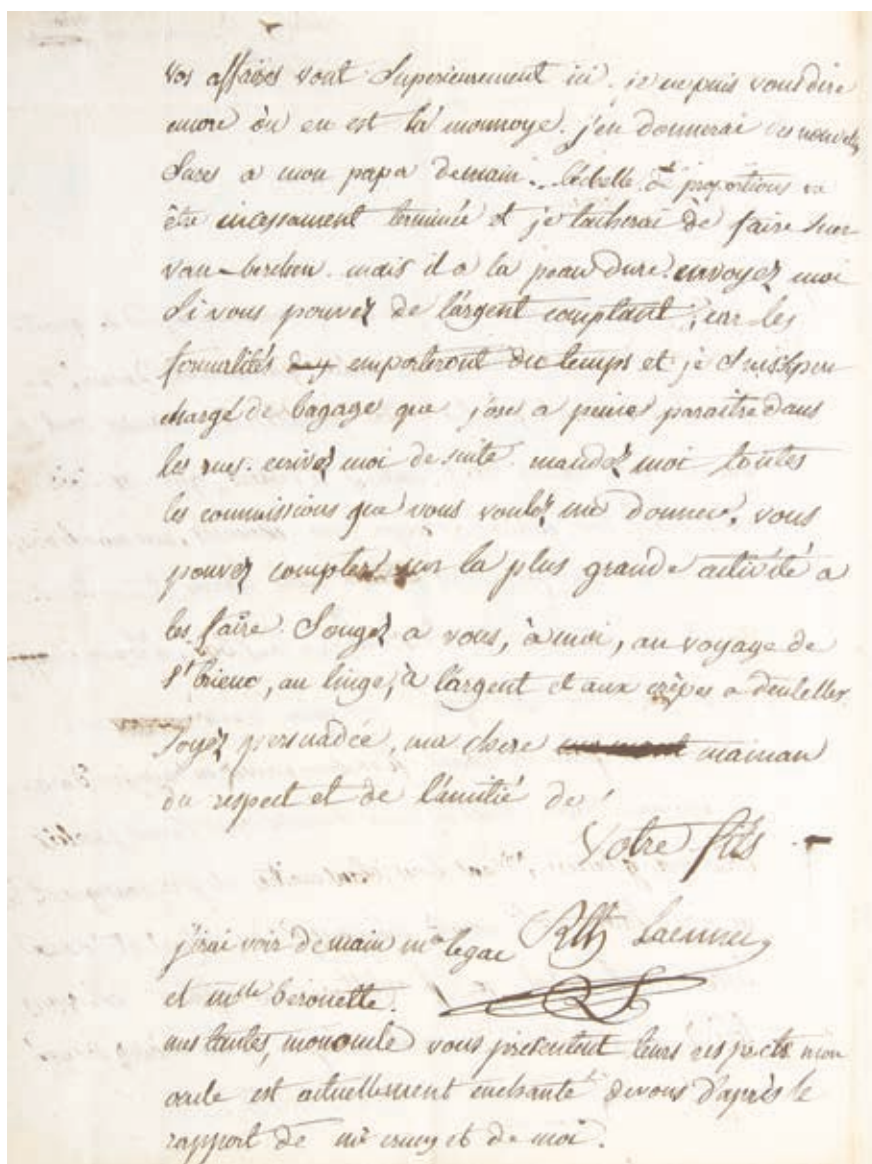 vos affaires vont Superieurement ici. je ne puis vous dire
encore òu en est la monnoye. j'en donnerai des nouvelles
Sures a mon papa demain. l'échelle de proportions va
être incessament terminée et je tacherai de faire Suer
van-berchen. mais il a la peau dure. envoyez moi
Si vous pouvez de l'argent comptant, car les
formalités emporteront du temps et je Suis Si peu
chargé de bagage que j'ose a peine paraitre dans
les rues. ecrivez moi de suite. mandez moi toutes
les commissions que vous voulez me donner. vous
pouvez compter sur la plus grande activité a
les faire. Songez a vous, à moi, au voyage de
St brieuc, au linge, à l'argent et aux crêpes a dentelles.
Soyez persuadée, ma chere maman
du respect et de l'amitié de
Votre fils
j'irai voir demain me legac Rth Laennec
et mlle berouette.
mes tantes, mon oncle vous presentent leurs respects mon
oncle est actuellement enchanté de vous d'après le
rapport de mr crucy et de moi.